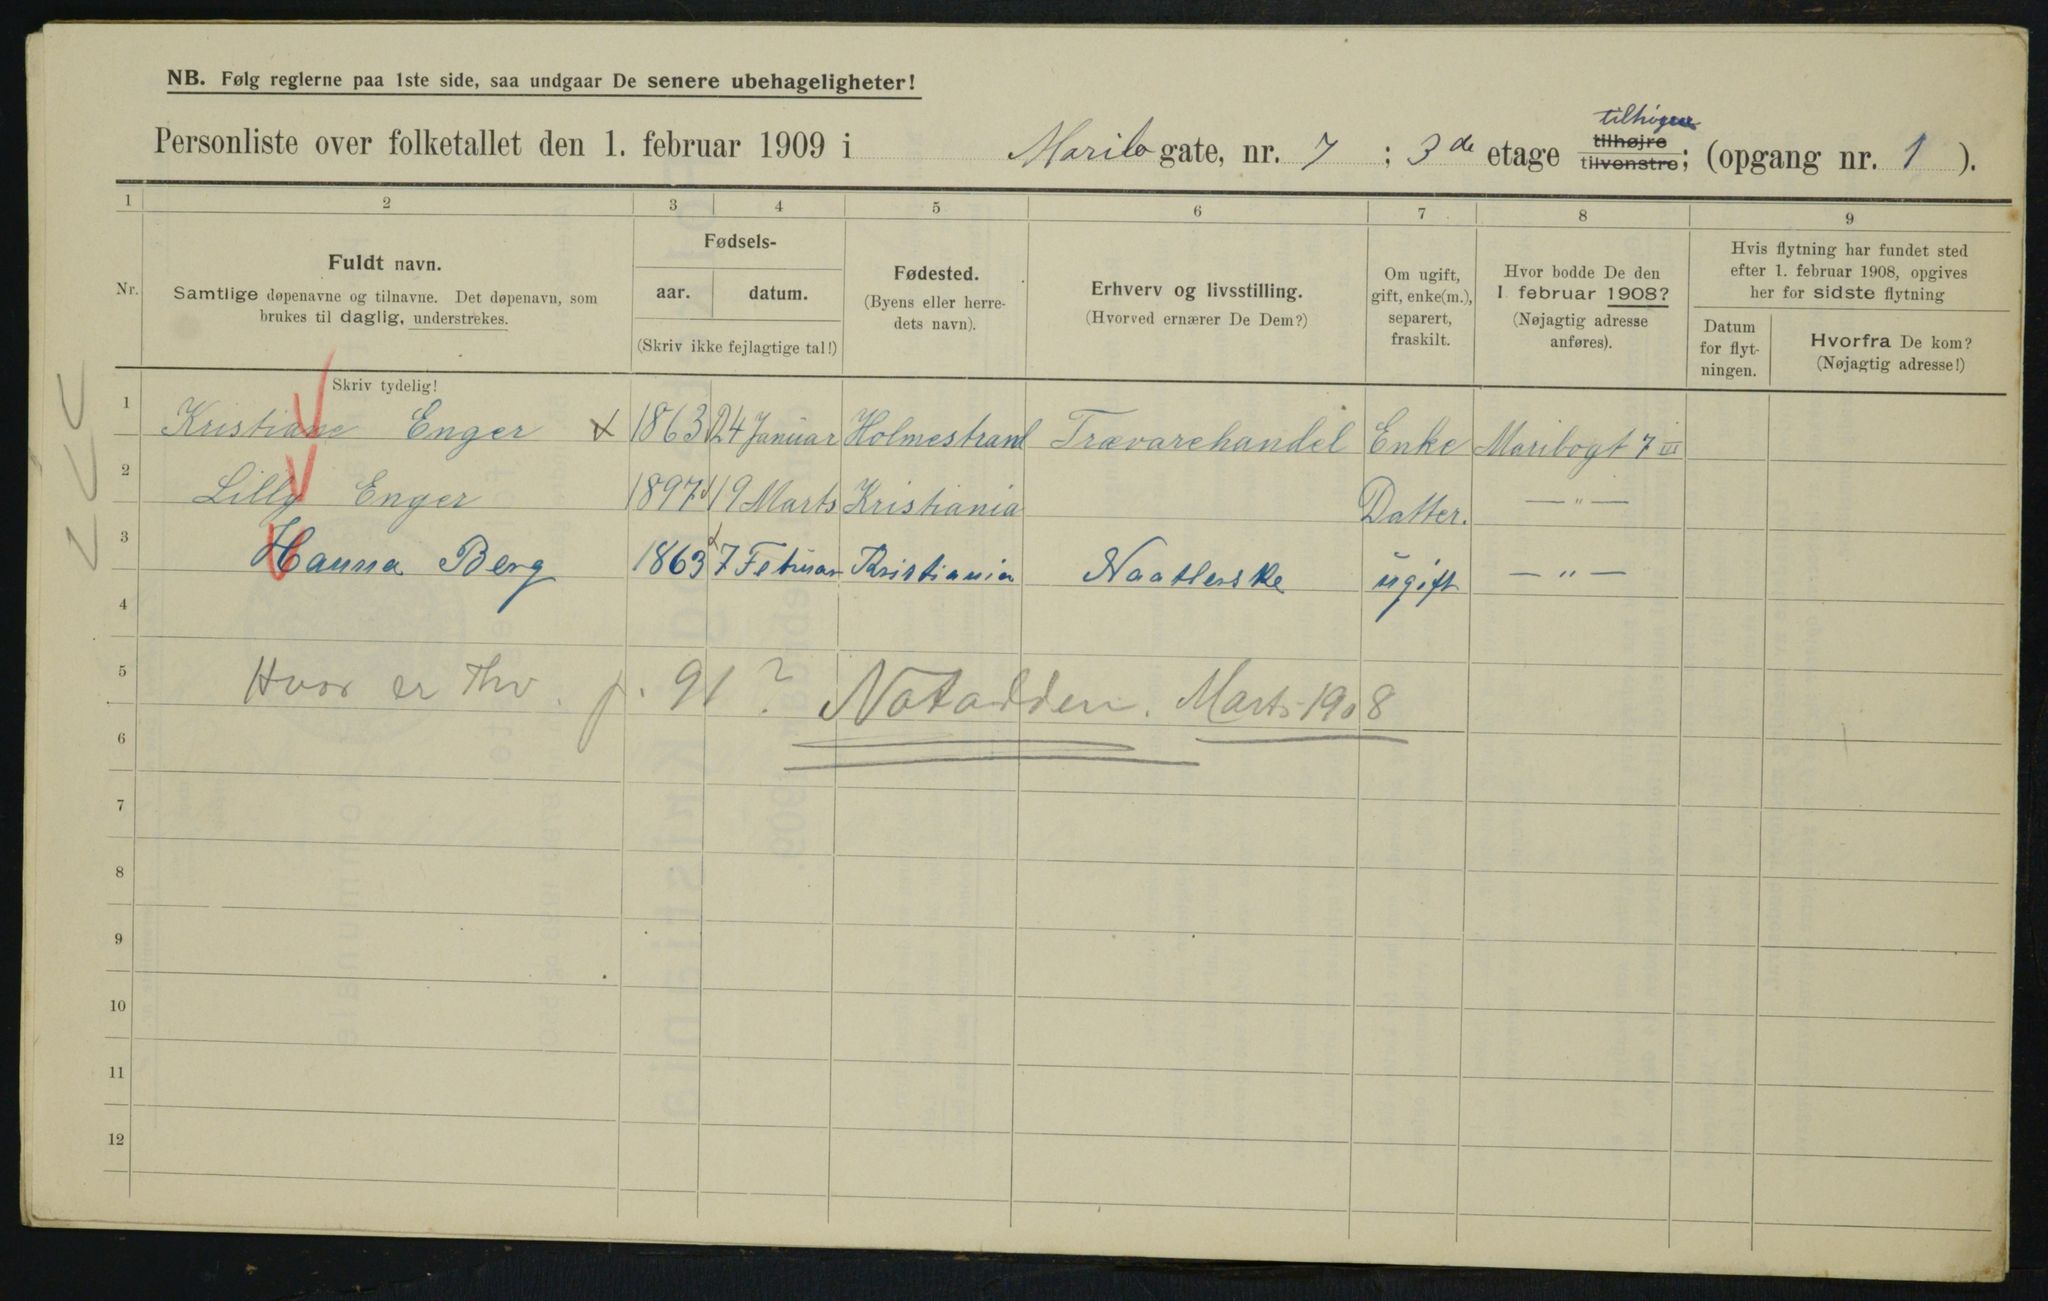 NB. Følg reglerne paa 1ste side, saa undgaar De senere ubehageligheter!
tilhøyre
Personliste over folketallet den 1. februar 1909 i Maribogate, nr. 7 ; 3de etage tilhøjre tilvenstre; (opgang nr. 1 ).
1 2 3 4 5 6 7 8 9
Nr.
Fuldt navn.
Samtlige døpenavne og tilnavne. Det døpenavn, som
brukes til daglig, understrekes.
Skriv tydelig!
Fødsels-
aar. datum.
(Skriv ikke fejlagtige tal!)
Fødested.
(Byens eller herre-
dets navn).
Erhverv og livsstilling.
(Hvorved ernærer De Dem?)
Om ugift,
gift, enke(m.),
separert,
fraskilt.
Hvor bodde De den
1 februar 1908?
(Nøjagtig adresse
anføres).
Hvis flytning har fundet sted
efter 1. februar 1908, opgives
her for sidste flytning
Datum
for flyt-
ningen.
Hvorfra De kom?
(Nøjagtig adresse!)
1 Kristiane Enger 1863 24 Januar Holmestrand Trævarehandel Enke Maribogt 7 III
2 Lilly Enger 1897 19 Marts Kristiania Datter. — " —
3 Hanna Berg 1863 7 Februar Kristiania Naatlerske ugift — " —
4
5 Hvor er Thv. f. 91? Notodden. Marts 1908
6
7
8
9
10
11
12